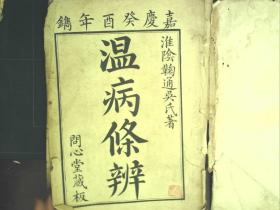 嘉慶癸酉年鐫
淮陰鞠通吳氏著
温病條辨
問心堂藏板